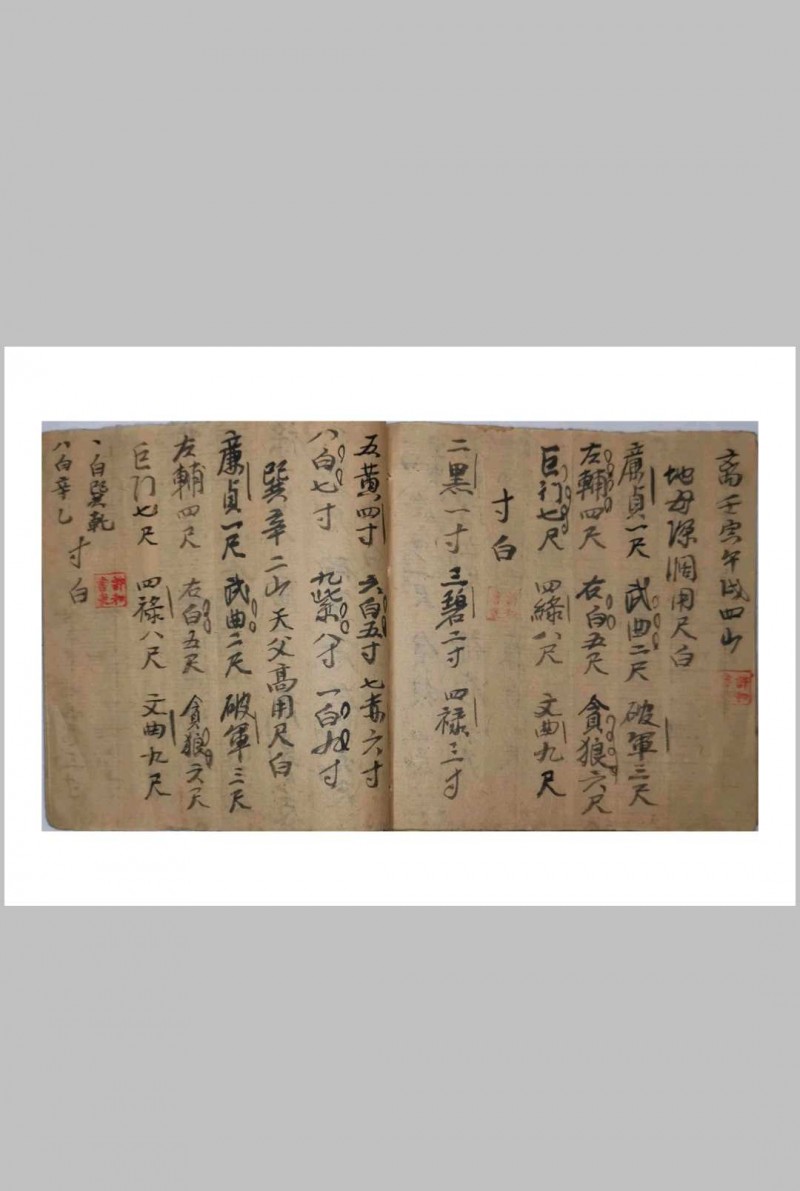 离壬寅午戌四山
地母深濶用尺白
廉貞一尺 武曲二尺 破軍三尺
左輔四尺 右白五尺 貪狼六尺
巨门七尺 四綠八尺 文曲九尺
寸白
二黑一寸 三碧二寸 四禄三寸
五黄四寸 六白五寸 七赤六寸
八白七寸 九紫八寸 一白九寸
巽辛二山天父高用尺白
廉貞一尺 武曲二尺 破軍三尺
左輔四尺 右白五尺 貪狼六尺
巨门七尺 四禄八尺 文曲九尺
寸白
一白巽乾
八白辛乙